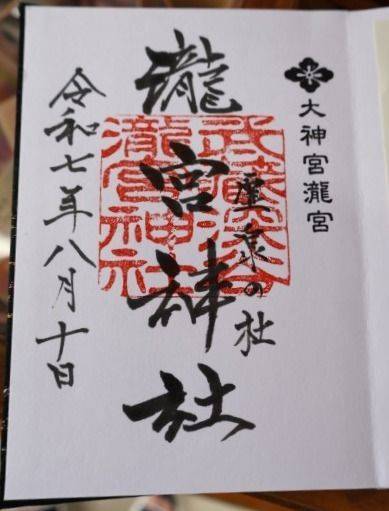 大神宮瀧宮
の杜
瀧宮神社
武蔵深谷
瀧宮神社
令和七年八月十日